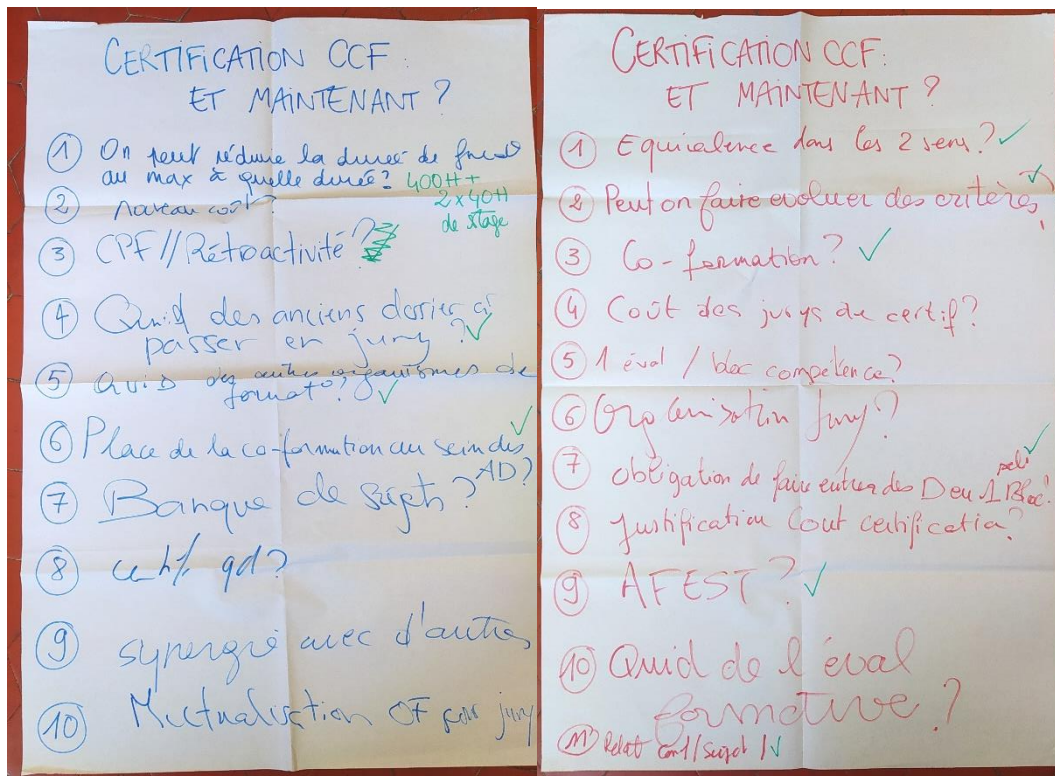 CERTIFICATION CCF :
ET MAINTENANT ?
① On peut réduire la durée de
au max à quelle durée? 400H +
2 x 40H
de stage
② coût?
③ CPF // Rétroactivité ?
④ Quid des anciens dossier à
passer en jury ? ✓
⑤ Quid des autres organismes de
format°? ✓
⑥ Place de la co-formation au sein des ✓
AD?
⑦ Banque de sujets ?
⑧ qd ?
⑨ synergie avec d'autres
⑩ Mutualisation OF pour jury
CERTIFICATION CCF:
ET MAINTENANT ?
① Equivalence dans les 2 sens? ✓
② Peut on faire evoluer des critères ✓
③ Co-formation? ✓
④ Coût des jurys de certif?
⑤ 1 éval / bloc compétence?
⑥ Organisation Jury?
⑦ Obligation de faire entrer des D en 1 Bloc? ✓
⑧ Justification Cout certification?
⑨ AFEST? ✓
⑩ Quid de l'éval
formative ?
⑪ Relat / ✓